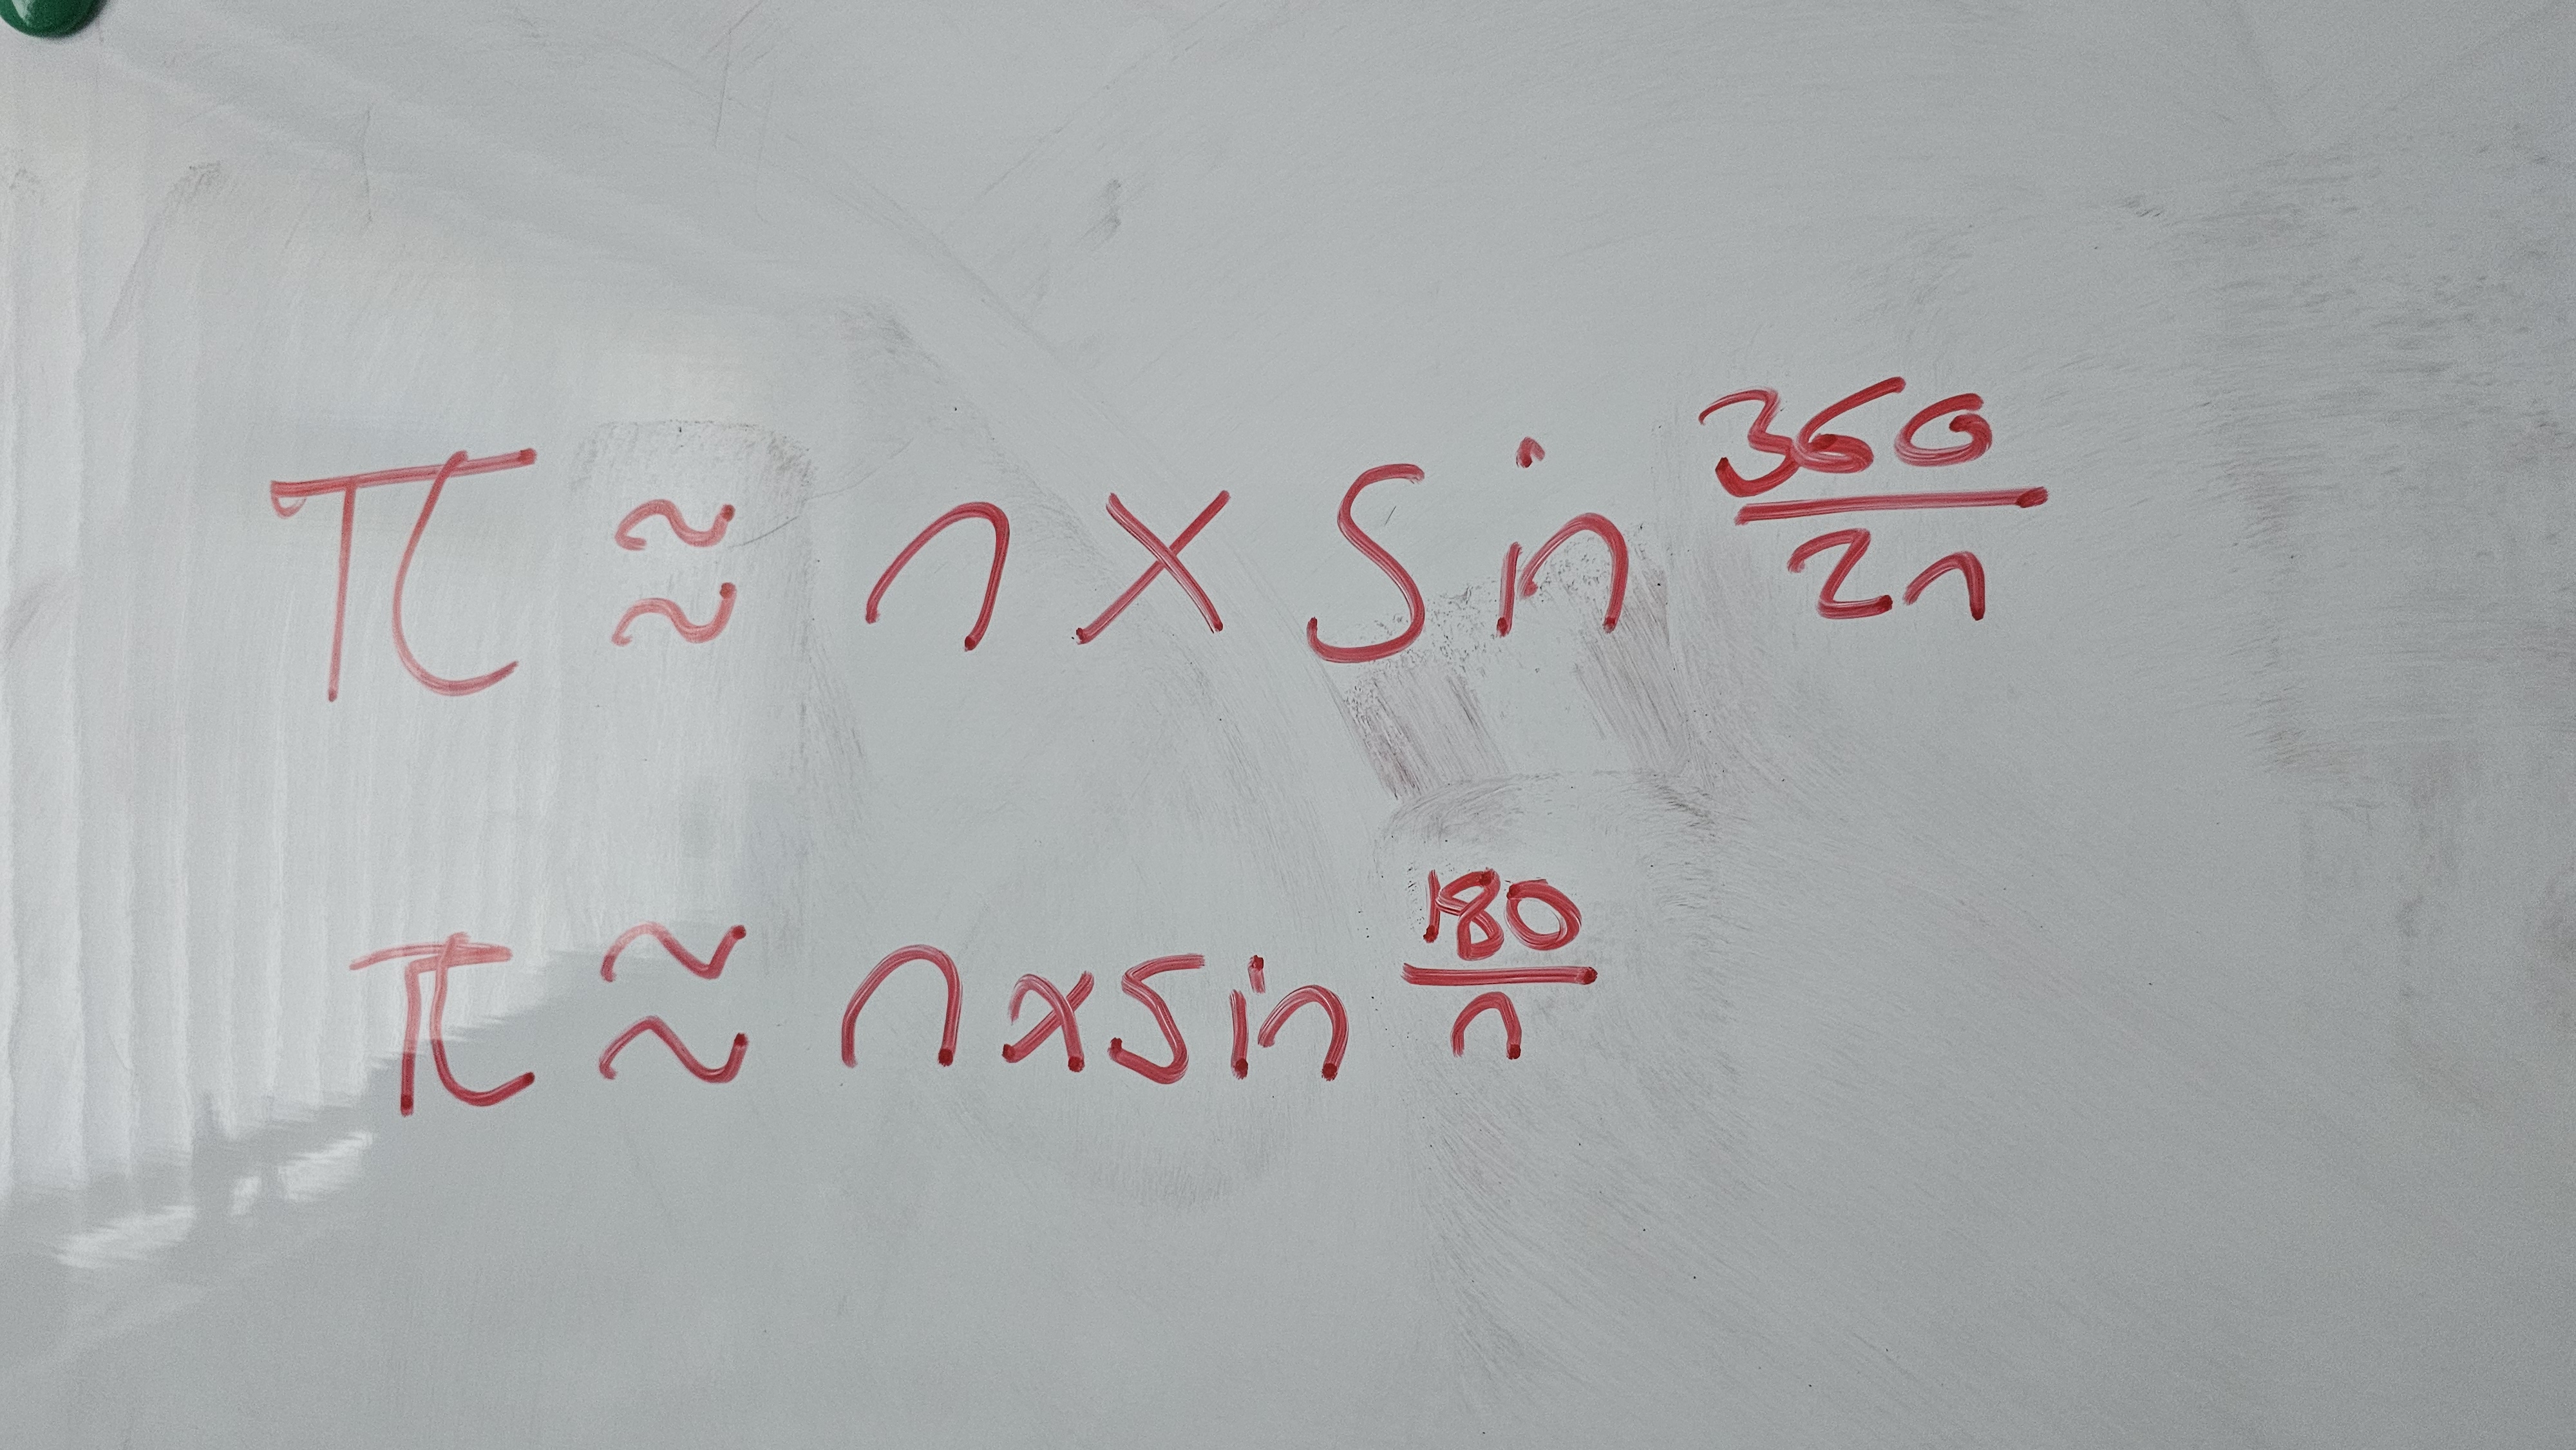 π ≈ n × sin 360/2n
π ≈ n × sin 180/n